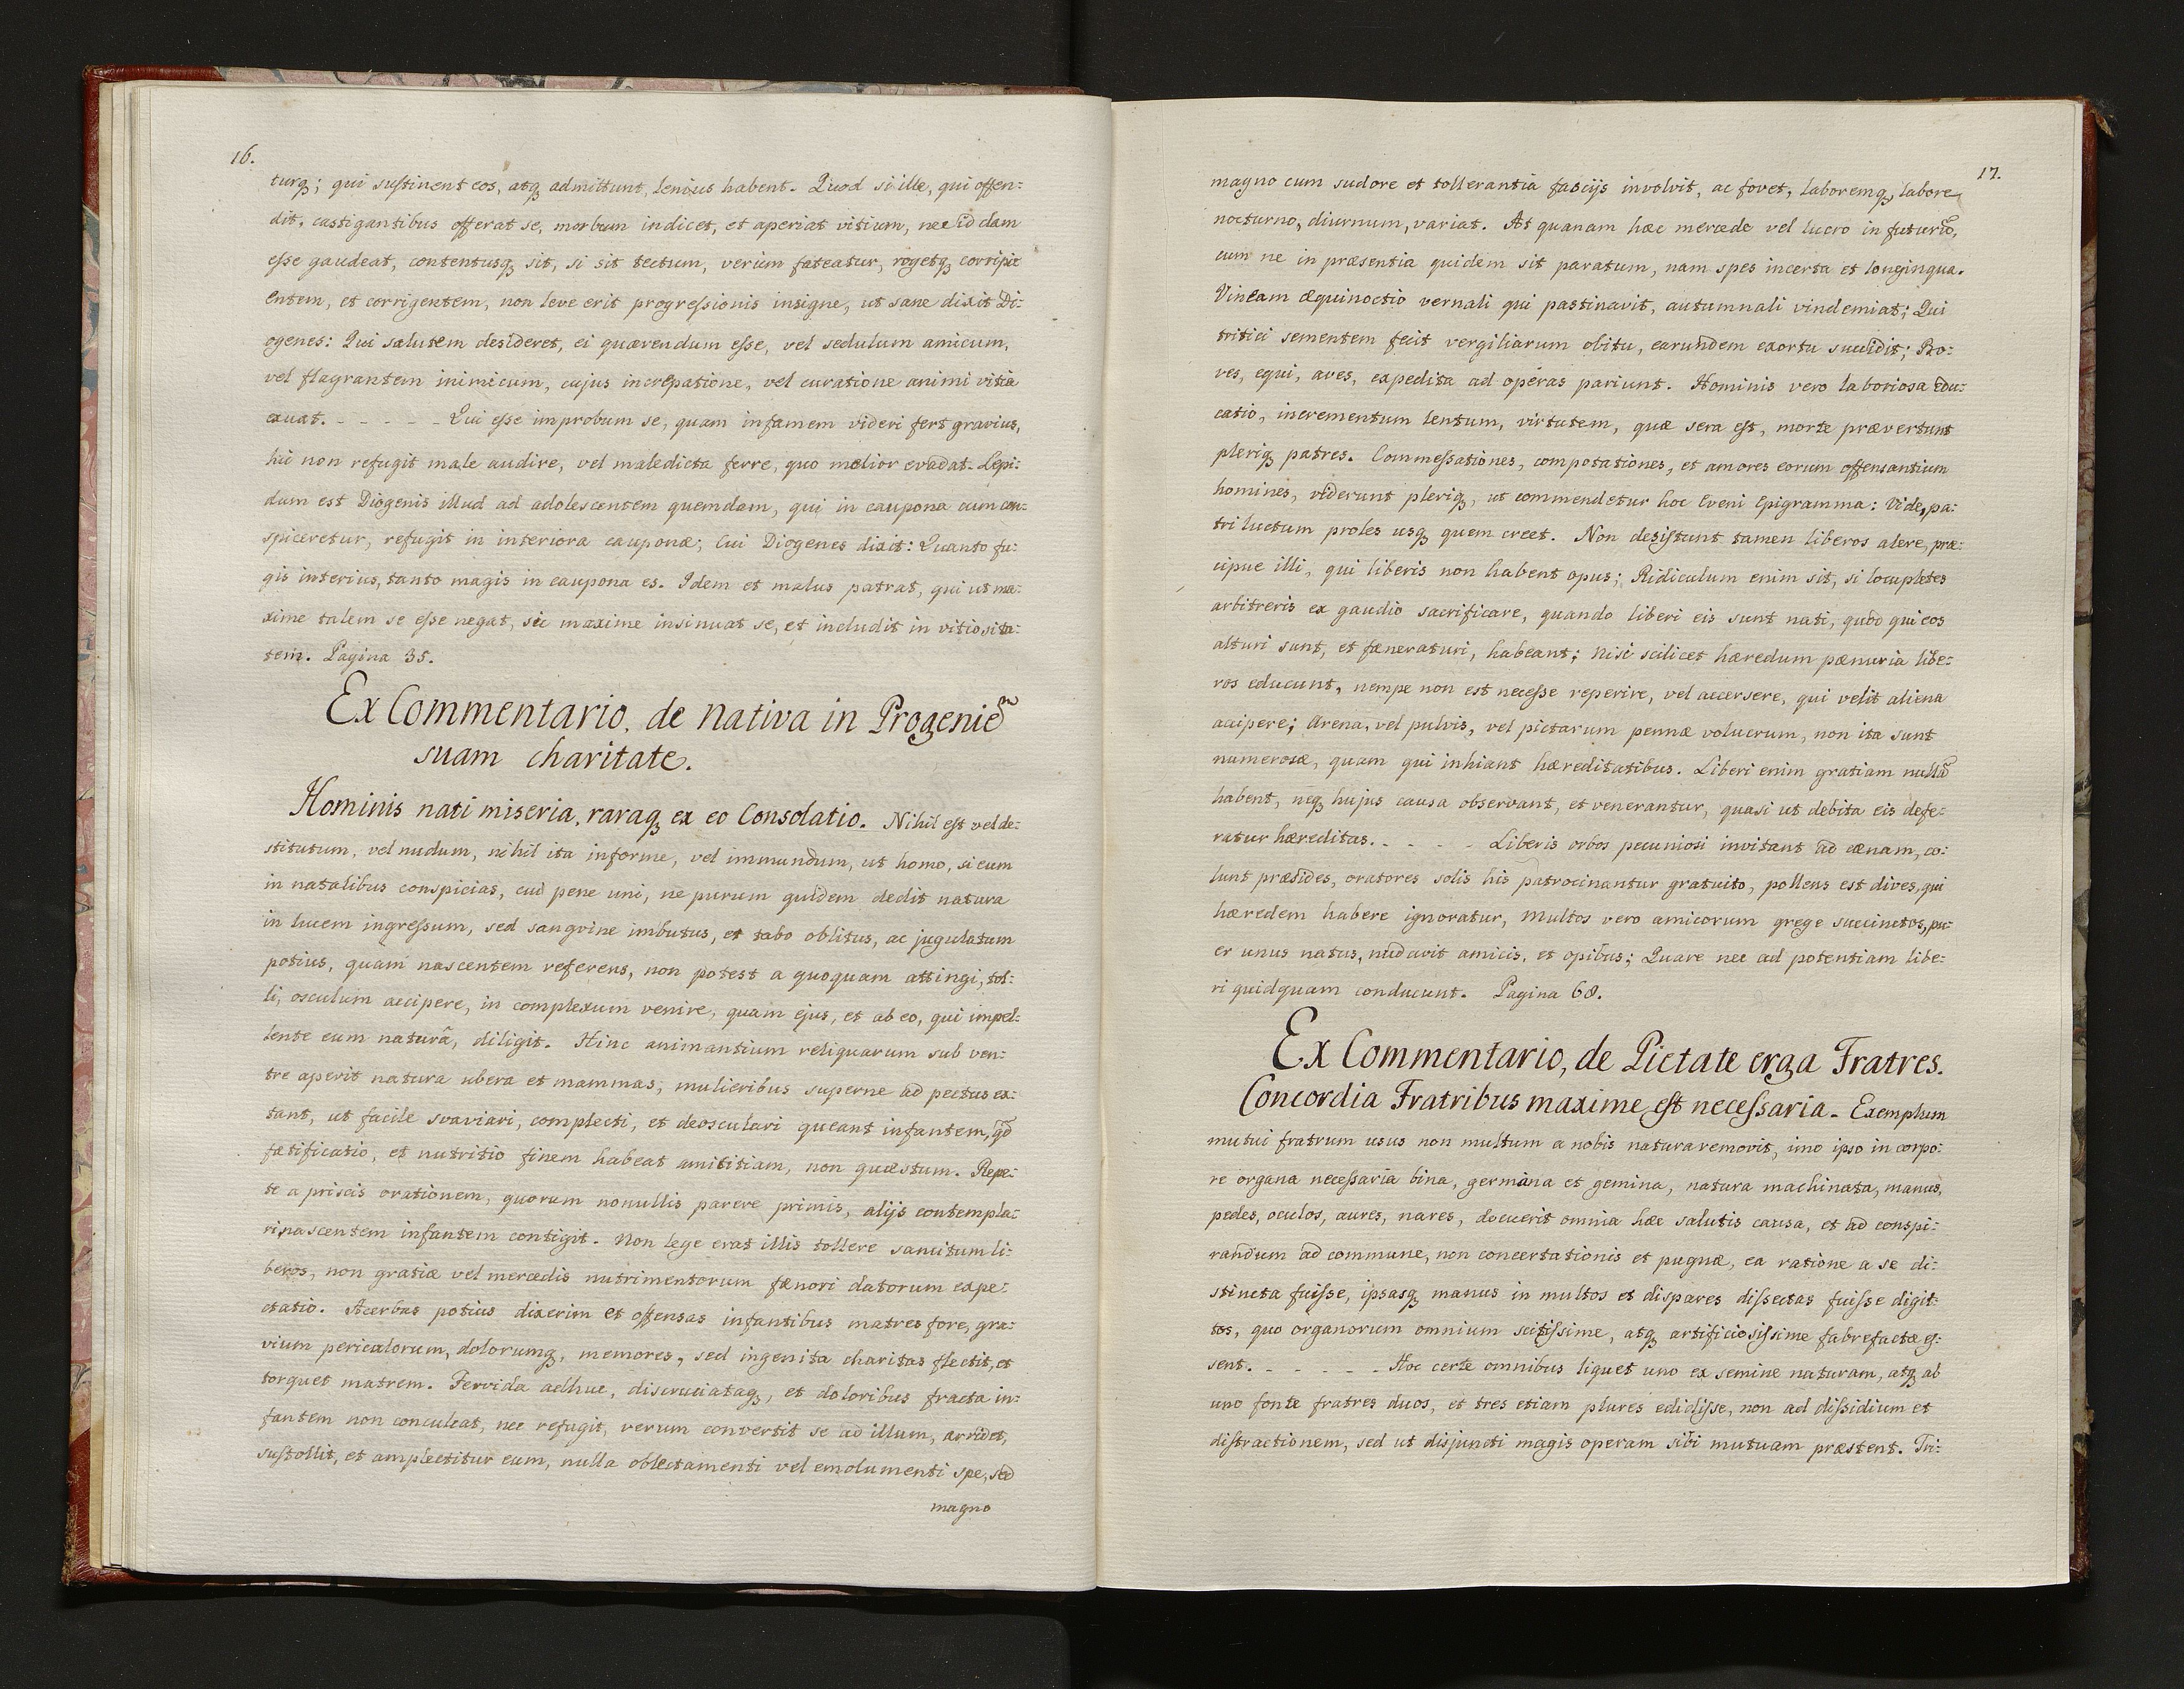 16.
turq; qui sustinent eos, atq admittunt, lenius habent. Quod si ille, qui offen:
dit, castigantibus offerat se, morbum indicet, et aperiat vitium, nec id clam
esse gaudeat, contentusq sit, si sit tectum, verum fateatur, rogetq corripi
entem, et corrigentem, non leve erit progressionis insigne, ut sane dixit Di:
ogenes: Qui salutem desideret, ei quærendum esse, vel sedulum amicum,
vel flagrantem inimicum, cujus increpatione, vel curatione animi vitia
exuat. - - - - - Qui esse improbum se, quam infamem videri fert gravius,
hic non refugit male audire, vel maledicta ferre, quo melior evadat. Lepi:
dum est Diogenis illud ad adolescentem quemdam, qui in caupona cum con:
spiceretur, refugit in interiora cauponæ; Cui Diogenes dixit: Quanto fu:
gis interius, tanto magis in caupona es. Idem et malus patrat, qui ut ma:
xime talem se esse negat, sic maxime insinuat se, et includit in vitiosita:
tem. Pagina 35.
Ex Commentario, de Nativa in Progeniem
suam charitate.
Hominis nati miseria, raraq ex eo Consolatio. Nihil est vel de:
stitutum, vel nudum, nihil ita informe, vel immundum, ut homo, si eum
in natalibus conspicias, cui pene uni, ne purum quidem dedit natura
in lucem ingressum, sed sangvine imbutus, et tabo oblitus, ac jugulatum
potius, quam nascentem referens, non potest a quoquam attingi, tol:
li, osculum accipere, in complexum venire, quam ejus, et ab eo, qui impel:
lente eum naturâ, diligit. Hinc animantium reliquarum sub ven:
tre aperit natura ubera et mammas, mulieribus superne ad pectus ex:
tant, ut facile svaviari, complecti, et deosculari queant infantem, qd
fætificatio, et nutritio finem habeat amititiam, non quæstum. Repe:
te a priscis orationem, quorum nonullis parere primis, alijs contempla:
ri nascentem infantem contigit. Non lege erat illis tollere sancitum li:
beros, non gratiæ vel mercedis nutrimentorum fænori datorum expe:
ctatio. Acerbas potius dixerim et offensas infantibus matres fore, gra:
vium periculorum, dolorumq, memores, sed ingenita charitas flectit, et
torquet matrem. Fervida adhuc, discruciataq, et doloribus fracta in:
fantem non conculcat, nec refugit, verum convertit se ad illum, arridet,
sustollit, et amplectitur eum, nulla oblectamenti vel emolumenti spe, sed
magno
17.
magno cum sudore et tollerantia fascijs involvit, ac fovet, laboremq, labore
nocturno, diurnum, variat. At quanam hæc mercede vel lucro in futurũ,
cum ne in præsentia quidem sit paratum, nam spes incerta et longinqua.
Vineam æquinoctio vernali qui pastinavit, autumnali vindemiat; Qui
tritici sementem fecit vergiliarum obitu, earundem exortu succidit; Bo:
ves, equi, aves, expedita ad operas pariunt. Hominis vero laboriosa edu:
catio, incrementum lentum, virtutem, quæ sera est, morte prævertunt
pleriq patres. Commessationes, compotationes, et amores eorum offensantium
homines, viderunt pleriq, ut commendetur hoc Eveni Epigramma: Vide, pa:
tri luctum proles usq quem creet. Non desistunt tamen liberos alere, præ:
cipue illi, qui liberis non habent opus; Ridiculum enim sit, si locupletes
arbitreris ex gaudio sacrificare, quando liberi eis sunt nati, quod qui eos
alturi sunt, et fæneraturi, habeant; Nisi scilicet hæredum pænuria libe:
ros educunt, nempe non est necesse reperire, vel accersere, qui velit aliena
accipere; Arena, vel pulvis, vel pictarum pennæ volucrum, non ita sunt
numerosæ, quam qui inhiant hæreditatibus. Liberi enim gratiam nullã
habent, neq hujus causa observant, et venerantur, quasi ut debita eis defe:
ratur hæreditas. - - - - Liberis orbos pecuniosi invitant ad cænam, co:
lunt præsides, oratores solis his patrocinantur gratuito, pollens est dives, qui
hæredem habere ignoratur, Multos vero amicorum grege succinctos, pu:
er unus natus, nudavit amicis, et opibus; Quare nec ad potentiam libe:
ri quidquam conducunt. Pagina 68.
Ex Commentario, de Pietate erga Fratres.
Concordia Fratribus maxime est necessaria. Exemplum
mutui fratrum usus non multum a nobis natura removit, imo ipso in corpo:
re organa necessaria bina, germana et gemina, natura machinata, manus,
pedes, oculos, aures, nares, docuerit omnia hæc salutis causa, et ad conspi:
randum ad commune, non concertationis et pugnæ, ea ratione a se di:
stincta fuisse, ipsasq manus in multos et dispares dissectas fuisse digit:
tos, quo organorum omnium scitissime, atq artificiosissime fabrefactæ es:
sent. - - - - - Hoc certe omnibus liquet uno ex semine naturam, atq ab
uno fonte fratres duos, et tres etiam plures edidisse, non ad dissidium et
distractionem, sed ut disjuncti magis operam sibi mutuam præstent. Tri: